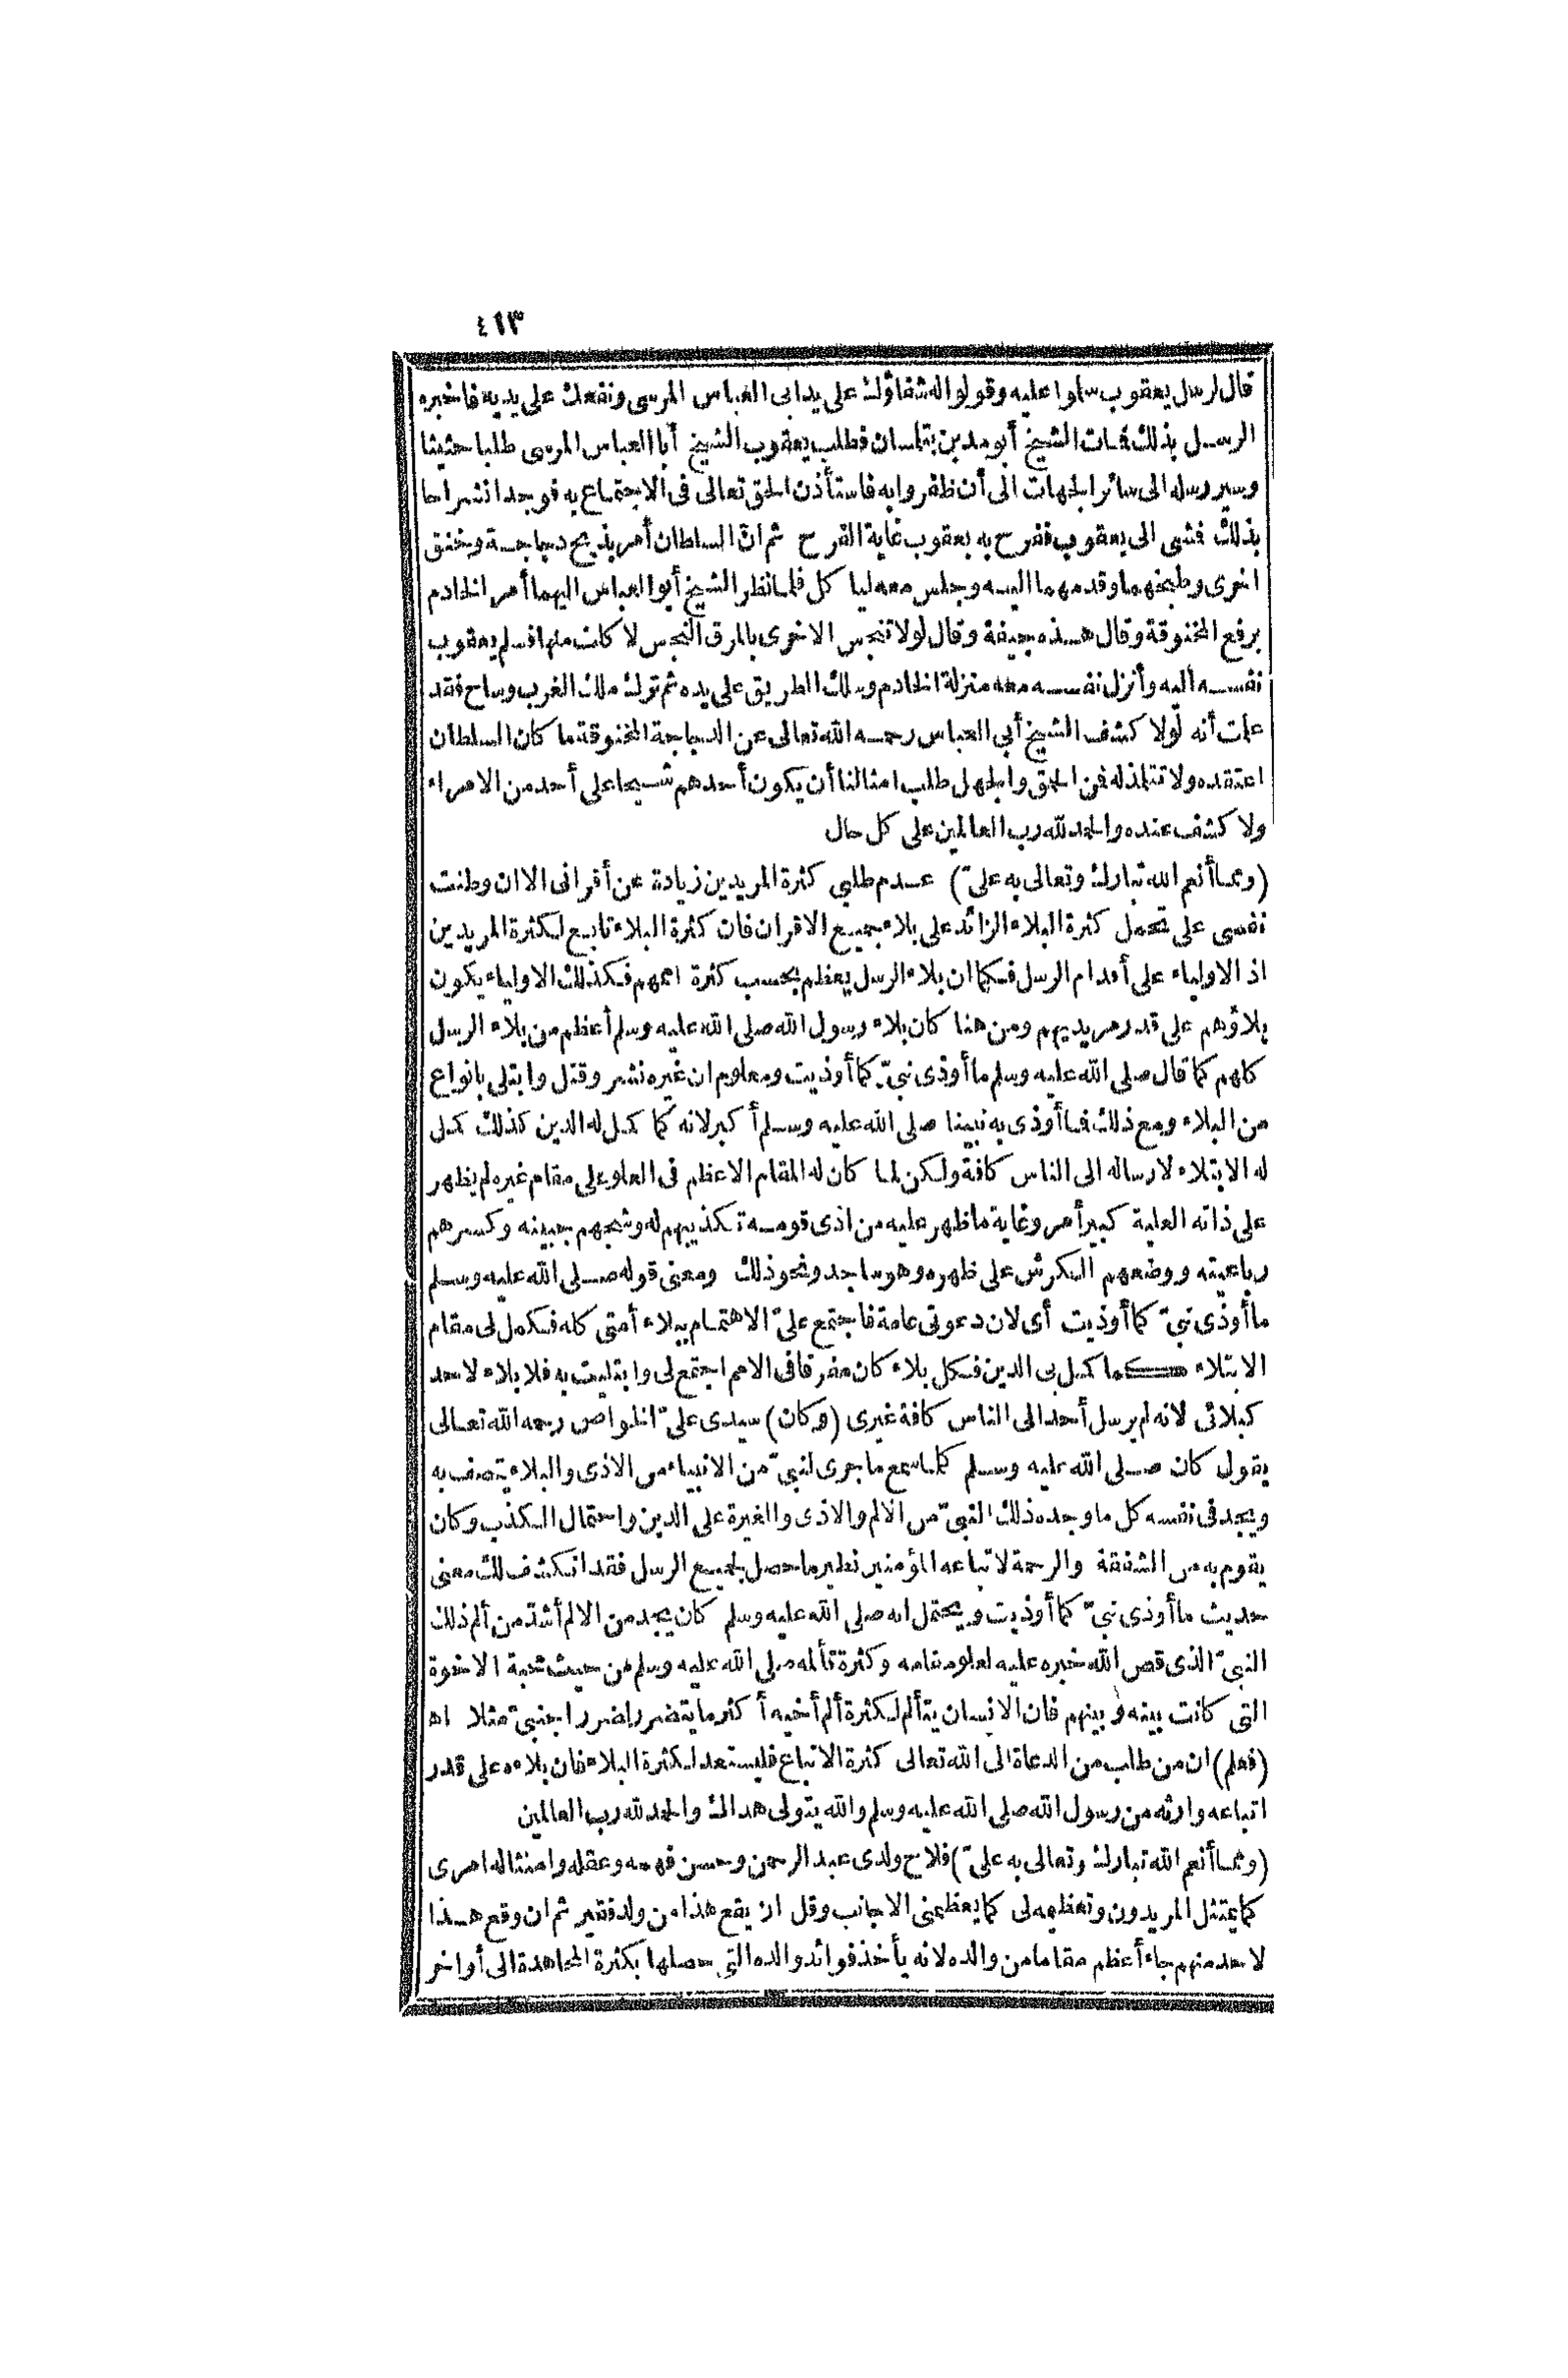 ٤١٣
قال لرسل يعقوب سلموا عليه وقولوا له شفاؤك على يد ابى العباس المرسى ونفعك على يديه فاخبره
الرسل بذلك فمات الشيخ أبو مدين بتلمسان فطلب يعقوب الشيخ أبا العباس المرسى طلبا حثيثا
وسير رسله الى سائر الجهات الى أن ظفروا به فاستأذن الحق تعالى فى الاجتماع به فوجد انشراحا
بذلك فمشى الى يعقوب ففرح به يعقوب غاية الفرح ثم ان السلطان أمر بذبح دجاجة وخنق
اخرى وطبخهما وقدمهما اليه وجلس معه ليا كل فلما نظر الشيخ أبو العباس اليهما أمر الخادم
برفع المخنوقة وقال هذه جيفة وقال لولا تنجس الاخرى بالمرق النجس لا كلت منها فسلم يعقوب
نفسه اليه وأنزل نفسه معه منزلة الخادم وسلك الطريق على يده ثم ترك ملك الغرب وساح فقد
علمت أنه لولا كشف الشيخ أبى العباس رحمه الله تعالى عن الدجاجة المخنوقة ما كان السلطان
اعتقده ولا تتلمذ له فمن الحمق والجهل طلب امثالنا أن يكون أحدهم شيخا على أحد من الامراء
ولا كشف عنده والحمد لله رب العالمين على كل حال
(ومما أنعم الله تبارك وتعالى به علىّ) عدم طلبى كثرة المريدين زيادة عن أقرانى الا ان وطنت
نفسى على تحمل كثرة البلاء الزائد على بلاء جميع الاقران فان كثرة البلاء تابع لكثرة المريدين
اذ الاولياء على أقدام الرسل فكما ان بلاء الرسل يعظم بحسب كثرة اممهم فكذلك الاولياء يكون
بلاؤهم على قدر مريديهم ومن هنا كان بلاء رسول الله صلى الله عليه وسلم أعظم من بلاء الرسل
كلهم كما قال صلى الله عليه وسلم ما أوذى نبىّ كما أوذيت ومعلوم ان غيره نشر وقتل وابتلى بانواع
من البلاء ومع ذلك فما أوذى به نبينا صلى الله عليه وسلم أ كبر لانه كما كمل له الدين كذلك كمل
له الابتلاء لارساله الى الناس كافة ولكن لما كان له المقام الاعظم فى العلو على مقام غيره لم يظهر
على ذاته العلية كبير أمر وغاية ما ظهر عليه من اذى قومه تكذيبهم له وشجهم جبينه وكسرهم
رباعيته ووضعهم الكرش على ظهره وهو ساجد ونحو ذلك ومعنى قوله صلى الله عليه وسلم
ما أوذى نبىّ كما أوذيت أى لان دعوتى عامة فاجتمع علىّ الاهتمام ببلاء أمتى كله فكمل لى مقام
الابتلاء كما كمل بى الدين فكل بلاء كان مفرقا فى الامم اجتمع لى وابتليت به فلا بلاء لاحد
كبلائى لانه لم يرسل أحد الى الناس كافة غيرى (وكان) سيدى علىّ الخواص رحمه الله تعالى
يقول كان صلى الله عليه وسلم كلما سمع ما جرى لنبىّ من الانبياء من الاذى والبلاء يتصف به
ويجد فى نفسه كل ما وجده ذلك النبىّ من الالم والاذى والغيرة على الدين واحتمال الكذب وكان
يقوم به من الشفقة والرحمة لاتباعه المؤمنين نظير ما حصل لجميع الرسل فقد انكشف لك معنى
حديث ما أوذى نبىّ كما أوذيت ويحتمل انه صلى الله عليه وسلم كان يجد من الالم أشدّ من ألم ذلك
النبىّ الذى قص الله خبره عليه لعلو مقامه وكثرة تألمه صلى الله عليه وسلم من حيث محبة الاخوة
التى كانت بينه وبينهم فان الانسان يتألم لكثرة ألم أخيه أ كثر ما يتضرر لضرر اجنبىّ مثلا اه
(فعلم) ان من طلب من الدعاة الى الله تعالى كثرة الاتباع فليستعد لكثرة البلاء فان بلاءه على قدر
اتباعه وارثه من رسول الله صلى الله عليه وسلم والله يتولى هداك والحمد لله رب العالمين
(ومما أنعم الله تبارك وتعالى به علىّ) فلاح ولدى عبد الرحمن وحسن فهمه وعقله وامتثاله امرى
كما يمتثل المريدون وتعظيمه لى كما يعظمنى الاجانب وقل ان يقع هذا من ولد فقير ثم ان وقع هذا
لاحد منهم جاء أعظم مقاما من والده لانه يأخذ فوائد والده التى حصلها بكثرة المجاهدة الى أواخر